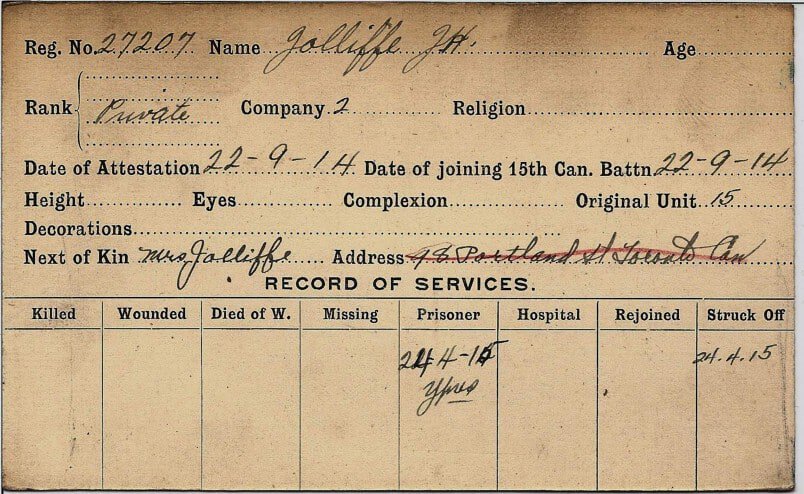 Reg. No. 27207 Name Jolliffe J H. Age
Rank Private Company 2 Religion
Date of Attestation 22-9-14 Date of joining 15th Can. Battn 22-9-14
Height Eyes Complexion Original Unit 15
Decorations
Next of Kin Mrs Jolliffe Address 93 Portland St Toronto Can
RECORD OF SERVICES.
Killed Wounded Died of W. Missing Prisoner Hospital Rejoined Struck Off
24-4-15 24.4.15
Ypres